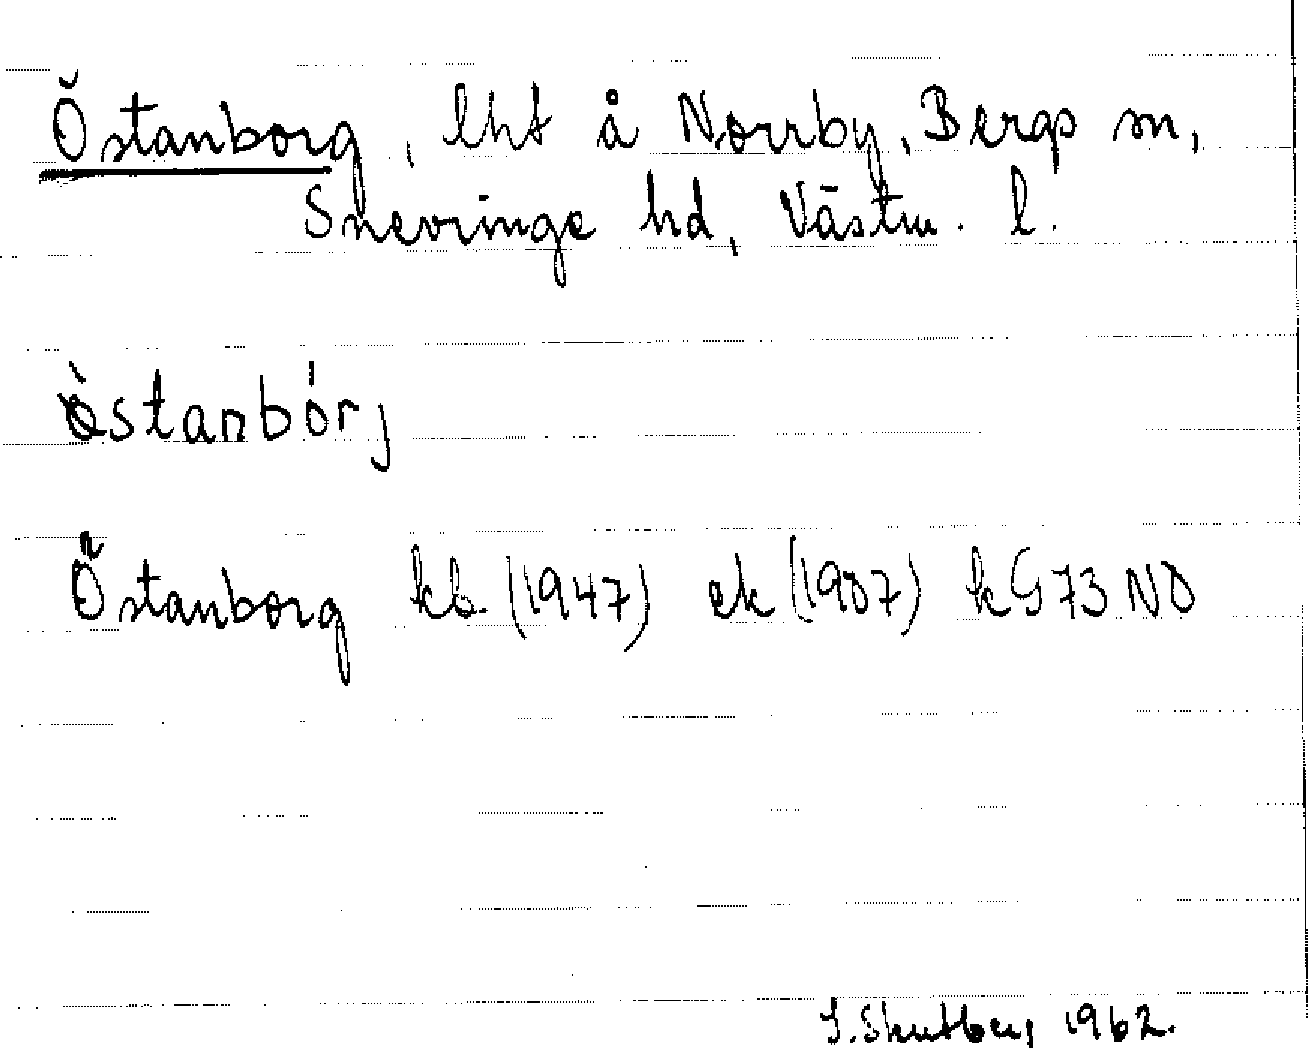 Östanborg, lht å Norrby, Bergs sn,
Snevringe hd, Västm. l.
östanbórj
Östanborg kb (1947) ek (1907) kG73NO
1962.